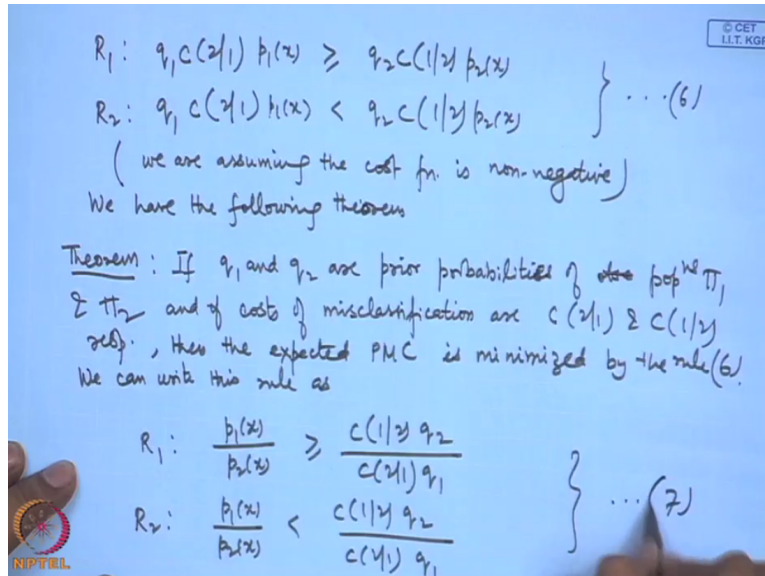 © CET
I.I.T. KGP
R₁: q₁ C(2/1) p₁(x) ≥ q₂ C(1/2) p₂(x)
R₂: q₁ C(2/1) p₁(x) < q₂ C(1/2) p₂(x) } ...(6)
(we are assuming the cost fn. is non-negative)
We have the following theorem
Theorem: If q₁ and q₂ are prior probabilities of popⁿˢ π₁
& π₂ and if costs of misclassification are C(2/1) & C(1/2)
resp., then the expected PMC is minimized by the rule (6).
We can write this rule as
R₁: p₁(x)/p₂(x) ≥ C(1/2) q₂ / C(2/1) q₁
R₂: p₁(x)/p₂(x) < C(1/2) q₂ / C(2/1) q₁ } ...(7)
NPTEL